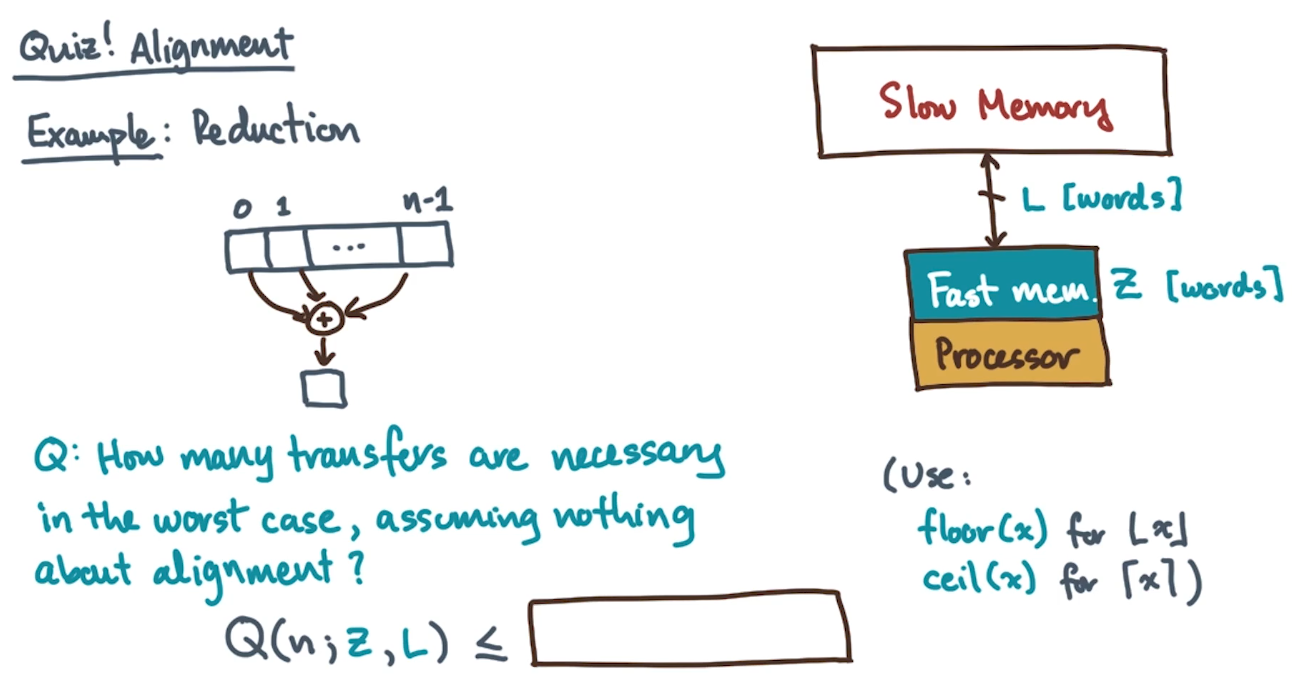 Quiz! Alignment
Example: Reduction
0 1 n-1
...
+
Slow Memory
L [words]
Fast mem. Z [words]
Processor
Q: How many transfers are necessary
in the worst case, assuming nothing
about alignment?
Q(n; Z, L) ≤
(Use:
floor(x) for ⌊x⌋
ceil(x) for ⌈x⌉)